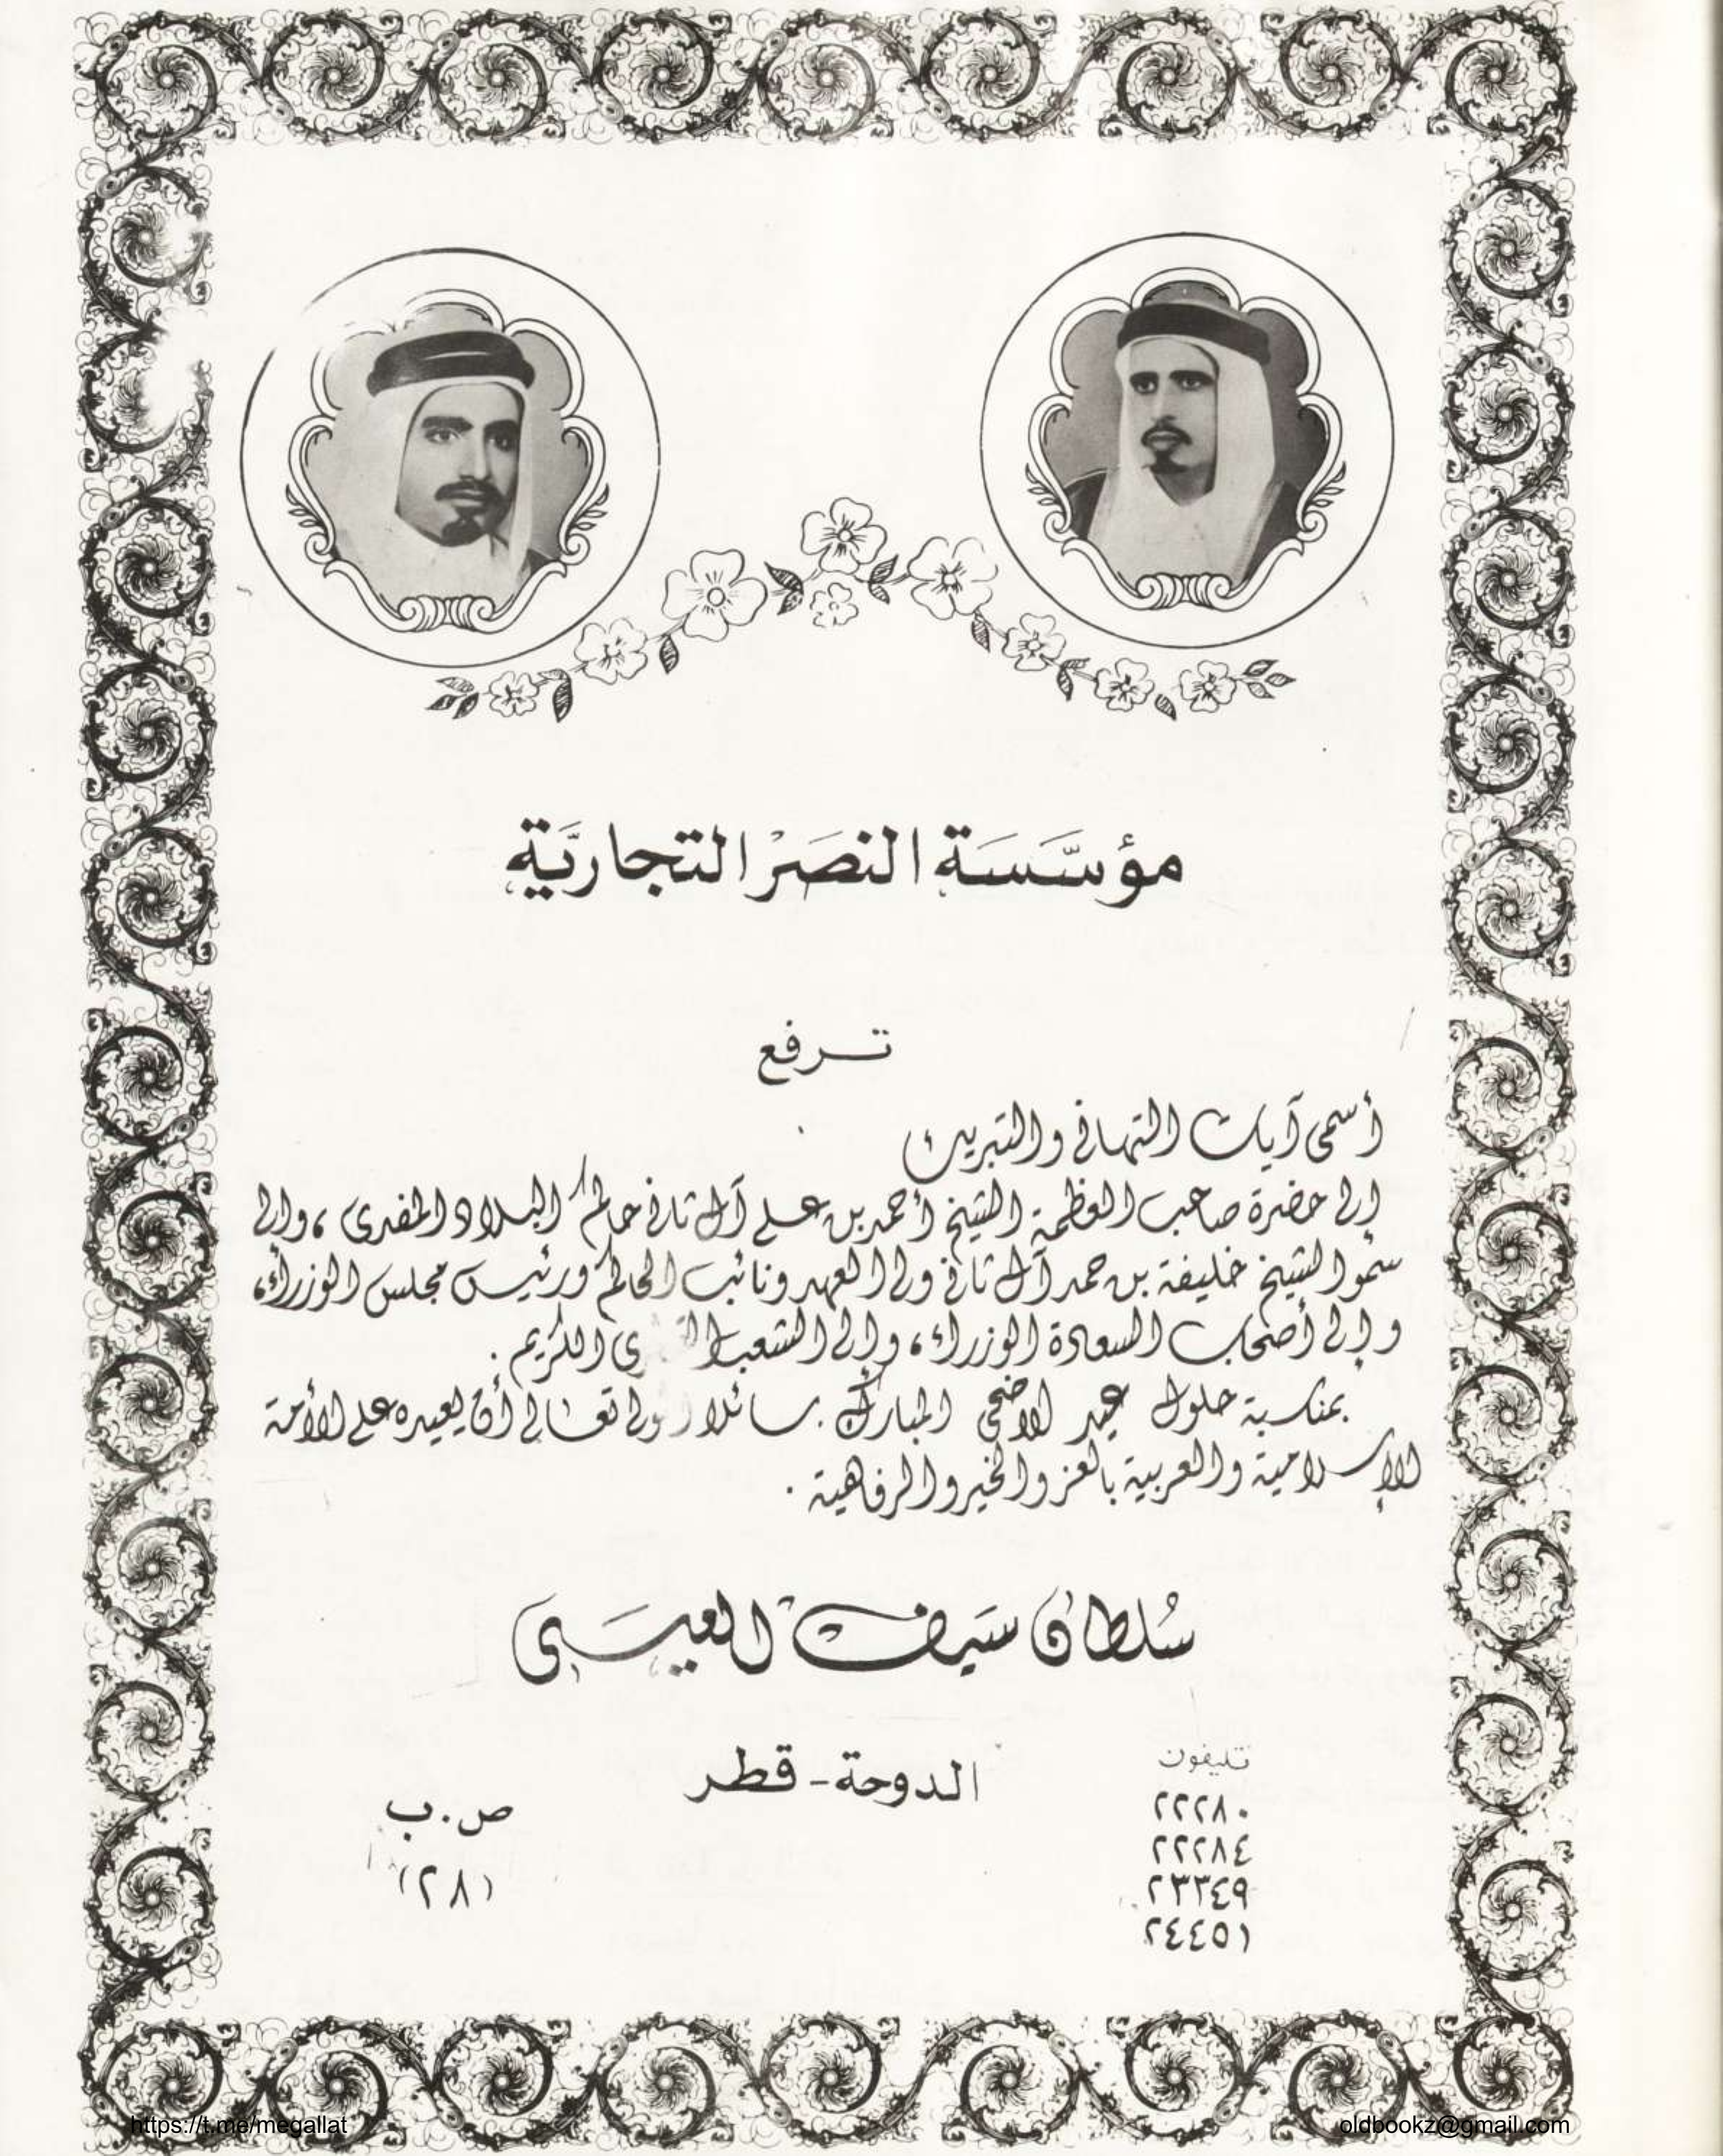 مؤسَّسَة النصَرْ التجاريَّة
ترفع
أسمى آيات التهاني والتبريك
إلى حضرة صاحب العظمة الشيخ أحمد بن علي آل ثاني حاكم البلاد المفدى ، وإلى
سمُو الشيخ خليفة بن حمد آل ثاني ولي العهد ونائب الحاكم ورئيس مجلس الوزراء،
وإلى أصحاب السعادة الوزراء ، وإلى الشعب الكريم .
بمناسبة حلول عيد الاضحى المبارك . سائلا تعالى أن يعيده على الأمة
الإسلامية والعربية بالعز والخير والرفاهية .
سُلطان سَيف العيسَى
الدوحة - قطر
تليفون
٢٢٢٨٠
٢٢٢٨٤
٢٣٣٤٩
٢٤٤٥١
ص . ب
(٢٨)
https://t.me/megallat
oldbookz@gmail.com